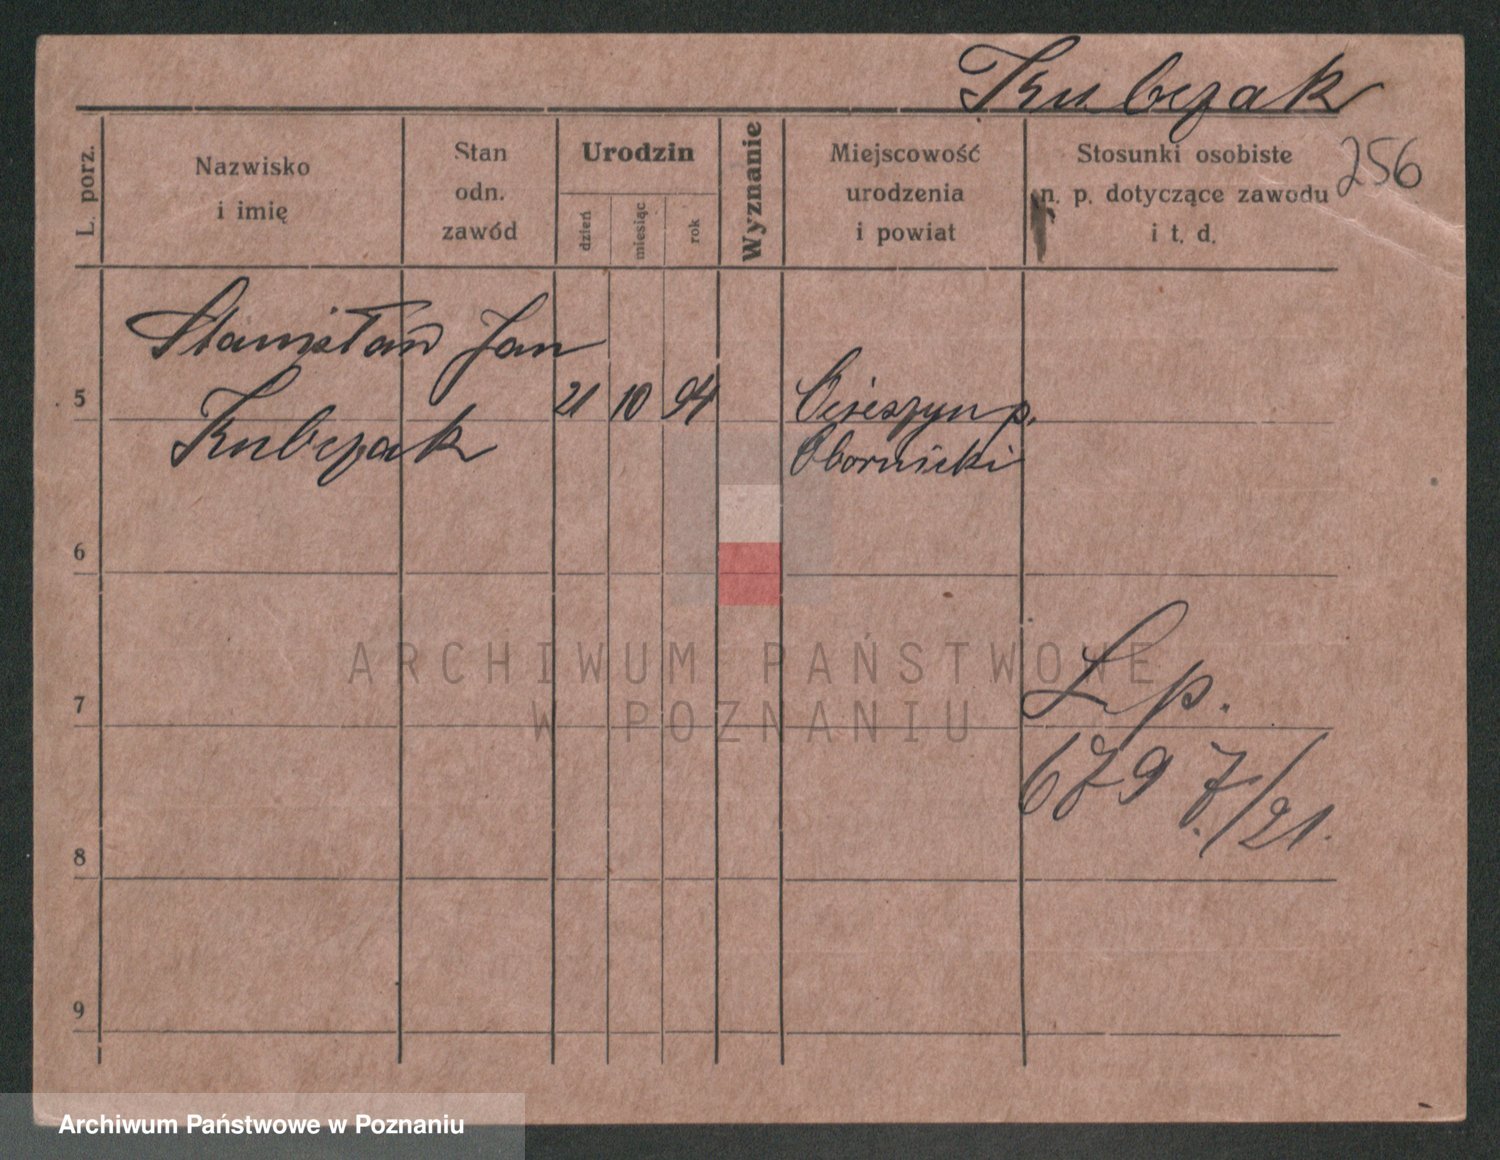 Kubczak
256
L. porz.
Nazwisko
i imię
Stan
odn.
zawód
Urodzin
dzień
miesiąc
rok
Wyznanie
Miejscowość
urodzenia
i powiat
Stosunki osobiste
n. p. dotyczące zawodu
i t. d.
Stanisław Jan
5
Kubczak
21 10 94
Cieszyn p.
Obornicki
6
ARCHIWUM PAŃSTWOWE
W POZNANIU
7
Lp.
6797/21.
8
9
Archiwum Państwowe w Poznaniu